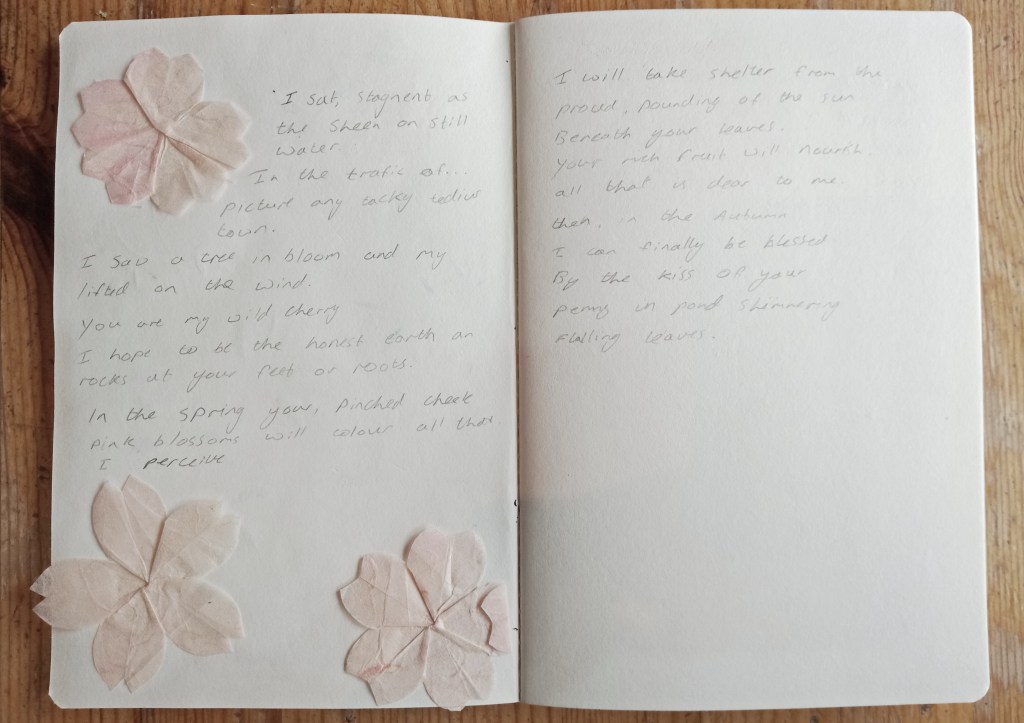 I sat, stagnent as
the sheen on still
water.
In the trafic of...
picture any tacky tedius
town.
I saw a tree in bloom and my
lifted on the wind.
You are my wild cherry
I hope to be the honest earth an
rocks at your feet or roots.
In the spring your, pinched cheek
pink blossoms will colour all that
I perceive
I will take shelter from the
proud, pounding of the sun
Beneath your leaves.
Your rich fruit will nourish.
all that is dear to me.
then, in the Autumn
I can finally be blessed
By the kiss of your
penny in pond shimmering
Falling leaves.